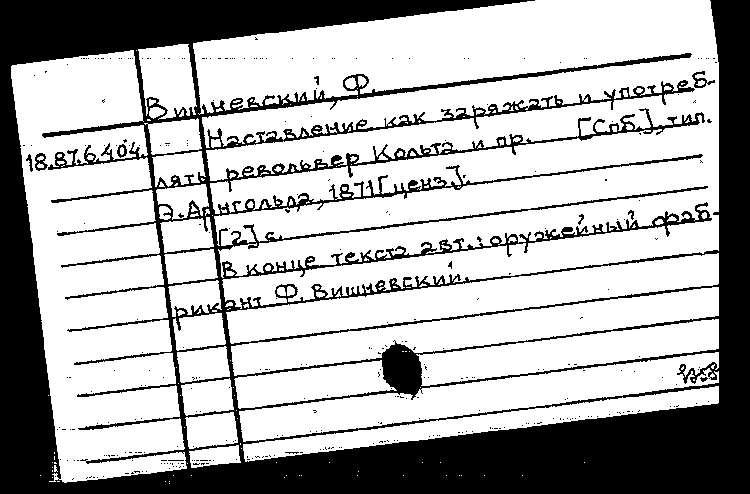 Вишневский, Ф.
18.87.6.404.
Наставление как заряжать и употреб-
лять револьвер Кольта и пр. [Спб.], тип.
Э. Арнгольда, 1871 [ценз].
[2] с.
В конце текста авт.: оружейный фаб-
рикант Ф. Вишневский.